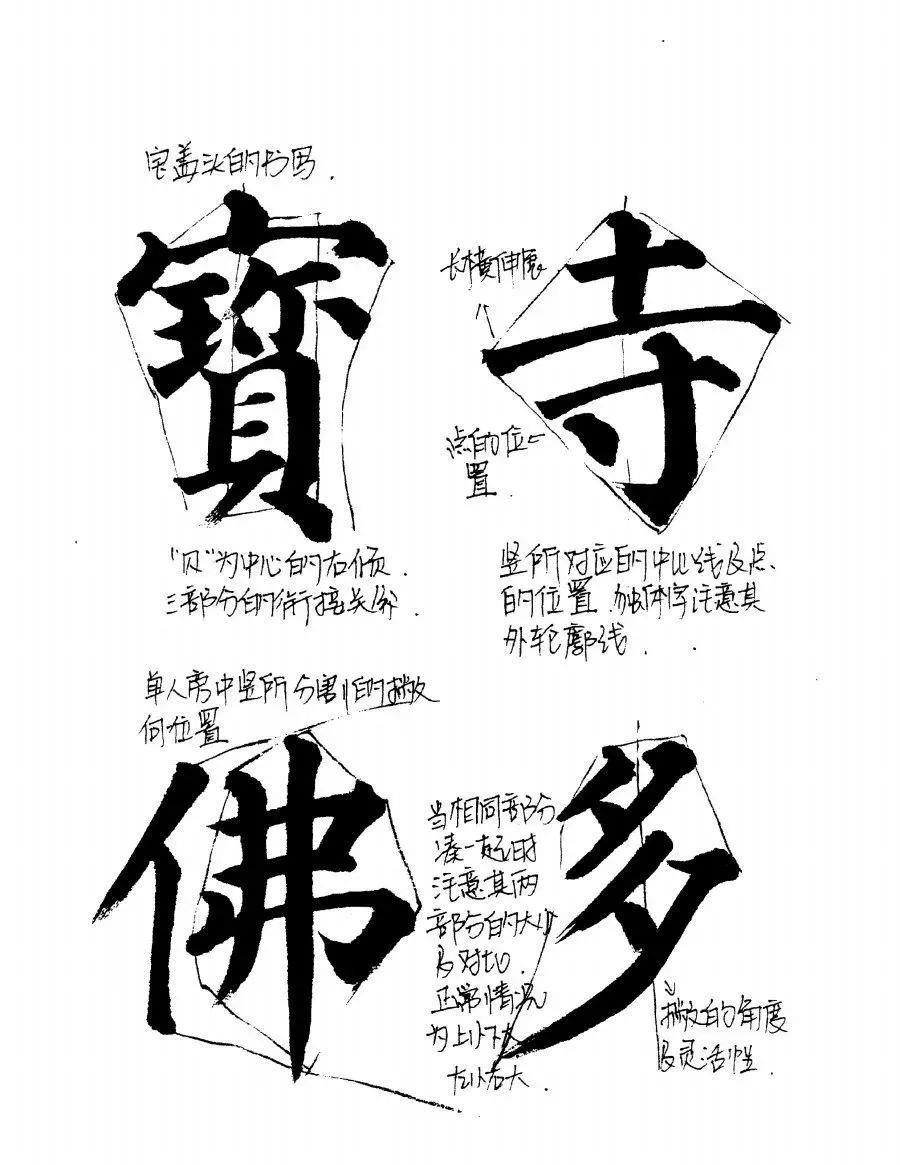 宝盖头的书写.
寳
"贝"为中心的右倾.
三部分的衔接关系.
长横伸展
寺
点的位
置.
竖所对应的中心线及点
的位置.独体字注意其
外轮廓线..
单人旁中竖所分割的撇
的位置
佛
当相同部分
凑一起时
注意其两
部分的大小
及对比.
正常情况
为上小下大
左小右大.
多
撇的角度
及灵活性.